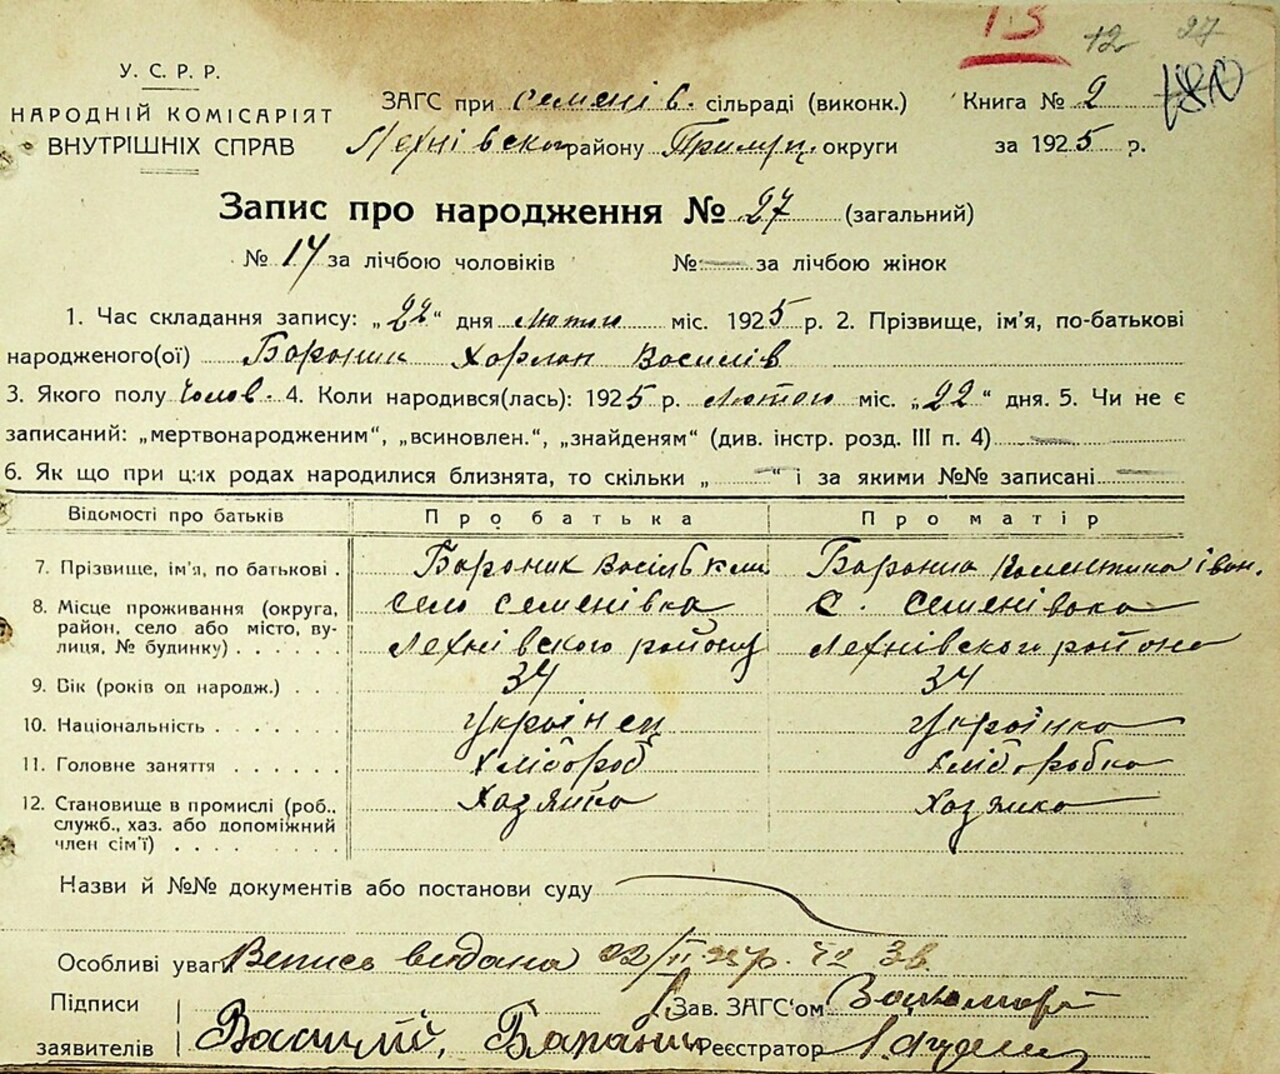 13 12 27
У. С. Р. Р.
НАРОДНІЙ КОМІСАРІЯТ
ВНУТРІШНІХ СПРАВ
ЗАГС при Семенів. сільраді (виконк.) Книга № 2
Лехнівского району Прилуц. округи за 1925 р.
Запис про народження № 27 (загальний)
№ 14 за лічбою чоловіків № — за лічбою жінок
1. Час складання запису: „22“ дня лютого міс. 1925 р. 2. Прізвище, ім'я, по-батькові
народженого(ої) Бороник Харлан Василів
3. Якого полу Чолов. 4. Коли народився(лась): 1925 р. лютого міс. „22“ дня. 5. Чи не є
записаний: „мертвонародженим“, „всиновлен.“, „знайденям“ (див. інстр. розд. III п. 4) —
6. Як що при цих родах народилися близнята, то скільки „—“ і за якими №№ записані —
Відомості про батьків Про батька Про матір
7. Прізвище, ім'я, по батькові . Бороник Василь Бороник іван.
8. Місце проживання (округа, село Семенівка с. Семенівка
район, село або місто, ву-
лиця, № будинку) . . . . . Лехнівского району Лехнівского района
9. Вік (років од народж.) . . . 34 34
10. Національність . . . . . . . українец українка
11. Головне заняття . . . . . . хлібороб хліборобка
12. Становище в промислі (роб., Хазяйка Хазяйка
служб., хаз. або допоміжний
член сім'ї) . . . . . . . . .
Назви й №№ документів або постанови суду
Особливі уваги Вепись видана 22/II 25 р. № 38
Підписи Зав. ЗАГС'ом
заявителів Василий, Баранник Реєстратор